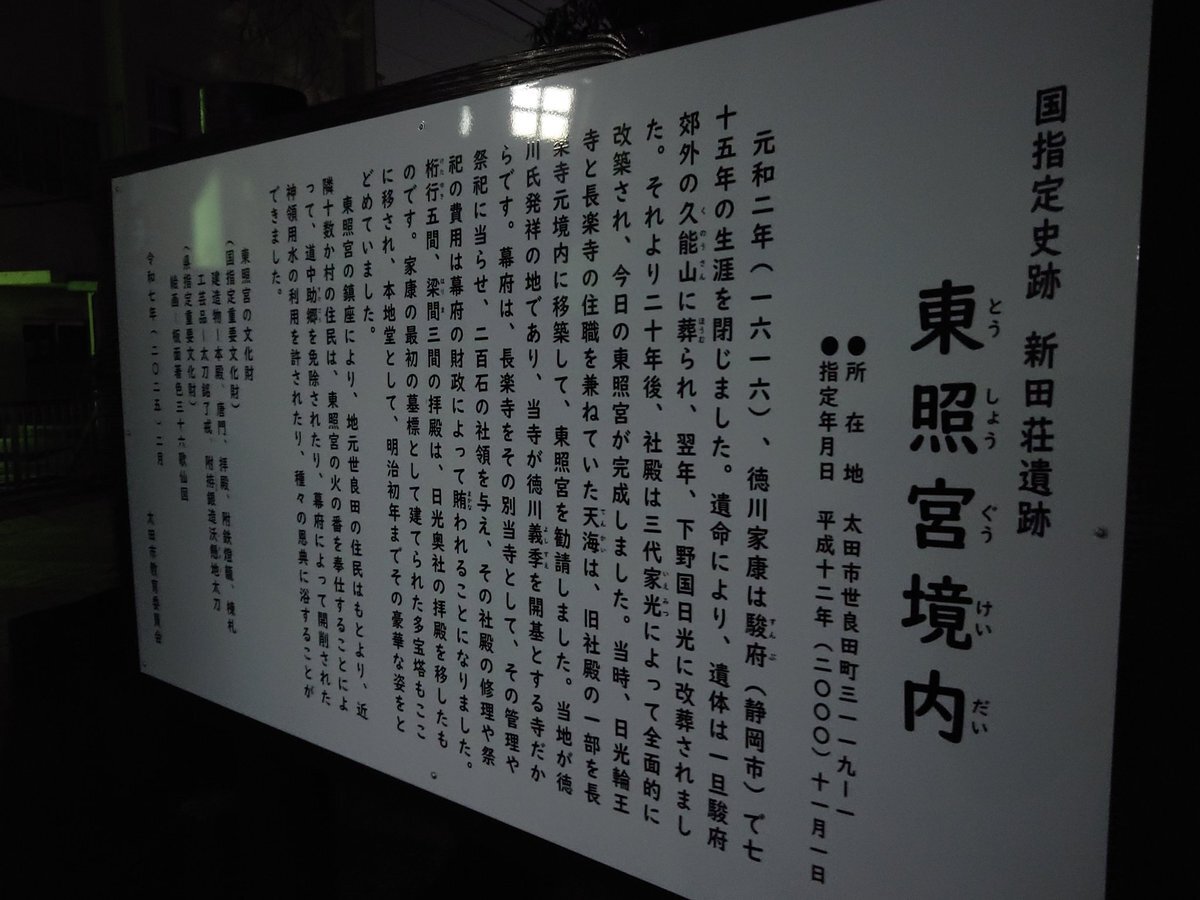 国指定史跡 新田荘遺跡
東照宮境内
とうしょうぐうけいだい
●所在地 太田市世良田町三一一九ー一
●指定年月日 平成十二年（二〇〇〇）十一月一日
元和二年（一六一六）、徳川家康は駿府（静岡市）で七
すんぷ
十五年の生涯を閉じました。遺命により、遺体は一旦駿府
郊外の久能山に葬られ、翌年、下野国日光に改葬されまし
くのうざん ほうむ
た。それより二十年後、社殿は三代家光によって全面的に
いえみつ
改築され、今日の東照宮が完成しました。当時、日光輪王
寺と長楽寺の住職を兼ねていた天海は、旧社殿の一部を長
てんかい
楽寺元境内に移築して、東照宮を勧請しました。当地が徳
川氏発祥の地であり、当寺が徳川義季を開基とする寺だか
よしすえ
らです。幕府は、長楽寺をその別当寺として、その管理や
祭祀に当らせ、二百石の社領を与え、その社殿の修理や祭
祀の費用は幕府の財政によって賄われることになりました。
まかな
桁行五間、梁間三間の拝殿は、日光奥社の拝殿を移したも
けたゆき はりま
のです。家康の最初の墓標として建てられた多宝塔もここ
に移され、本地堂として、明治初年までその豪華な姿をと
どめていました。
東照宮の鎮座により、地元世良田の住民はもとより、近
隣十数か村の住民は、東照宮の火の番を奉仕することによ
って、道中助郷を免除されたり、幕府によって開削された
神領用水の利用を許されたり、種々の恩典に浴することが
できました。
東照宮の文化財
（国指定重要文化財）
建造物ー本殿、唐門、拝殿、附鉄燈籠、棟札
工芸品ー太刀銘了戒、附拵錦造沃懸地太刀
（県指定重要文化財）
絵画ー板面著色三十六歌仙図
令和七年（二〇二五）二月 太田市教育委員会